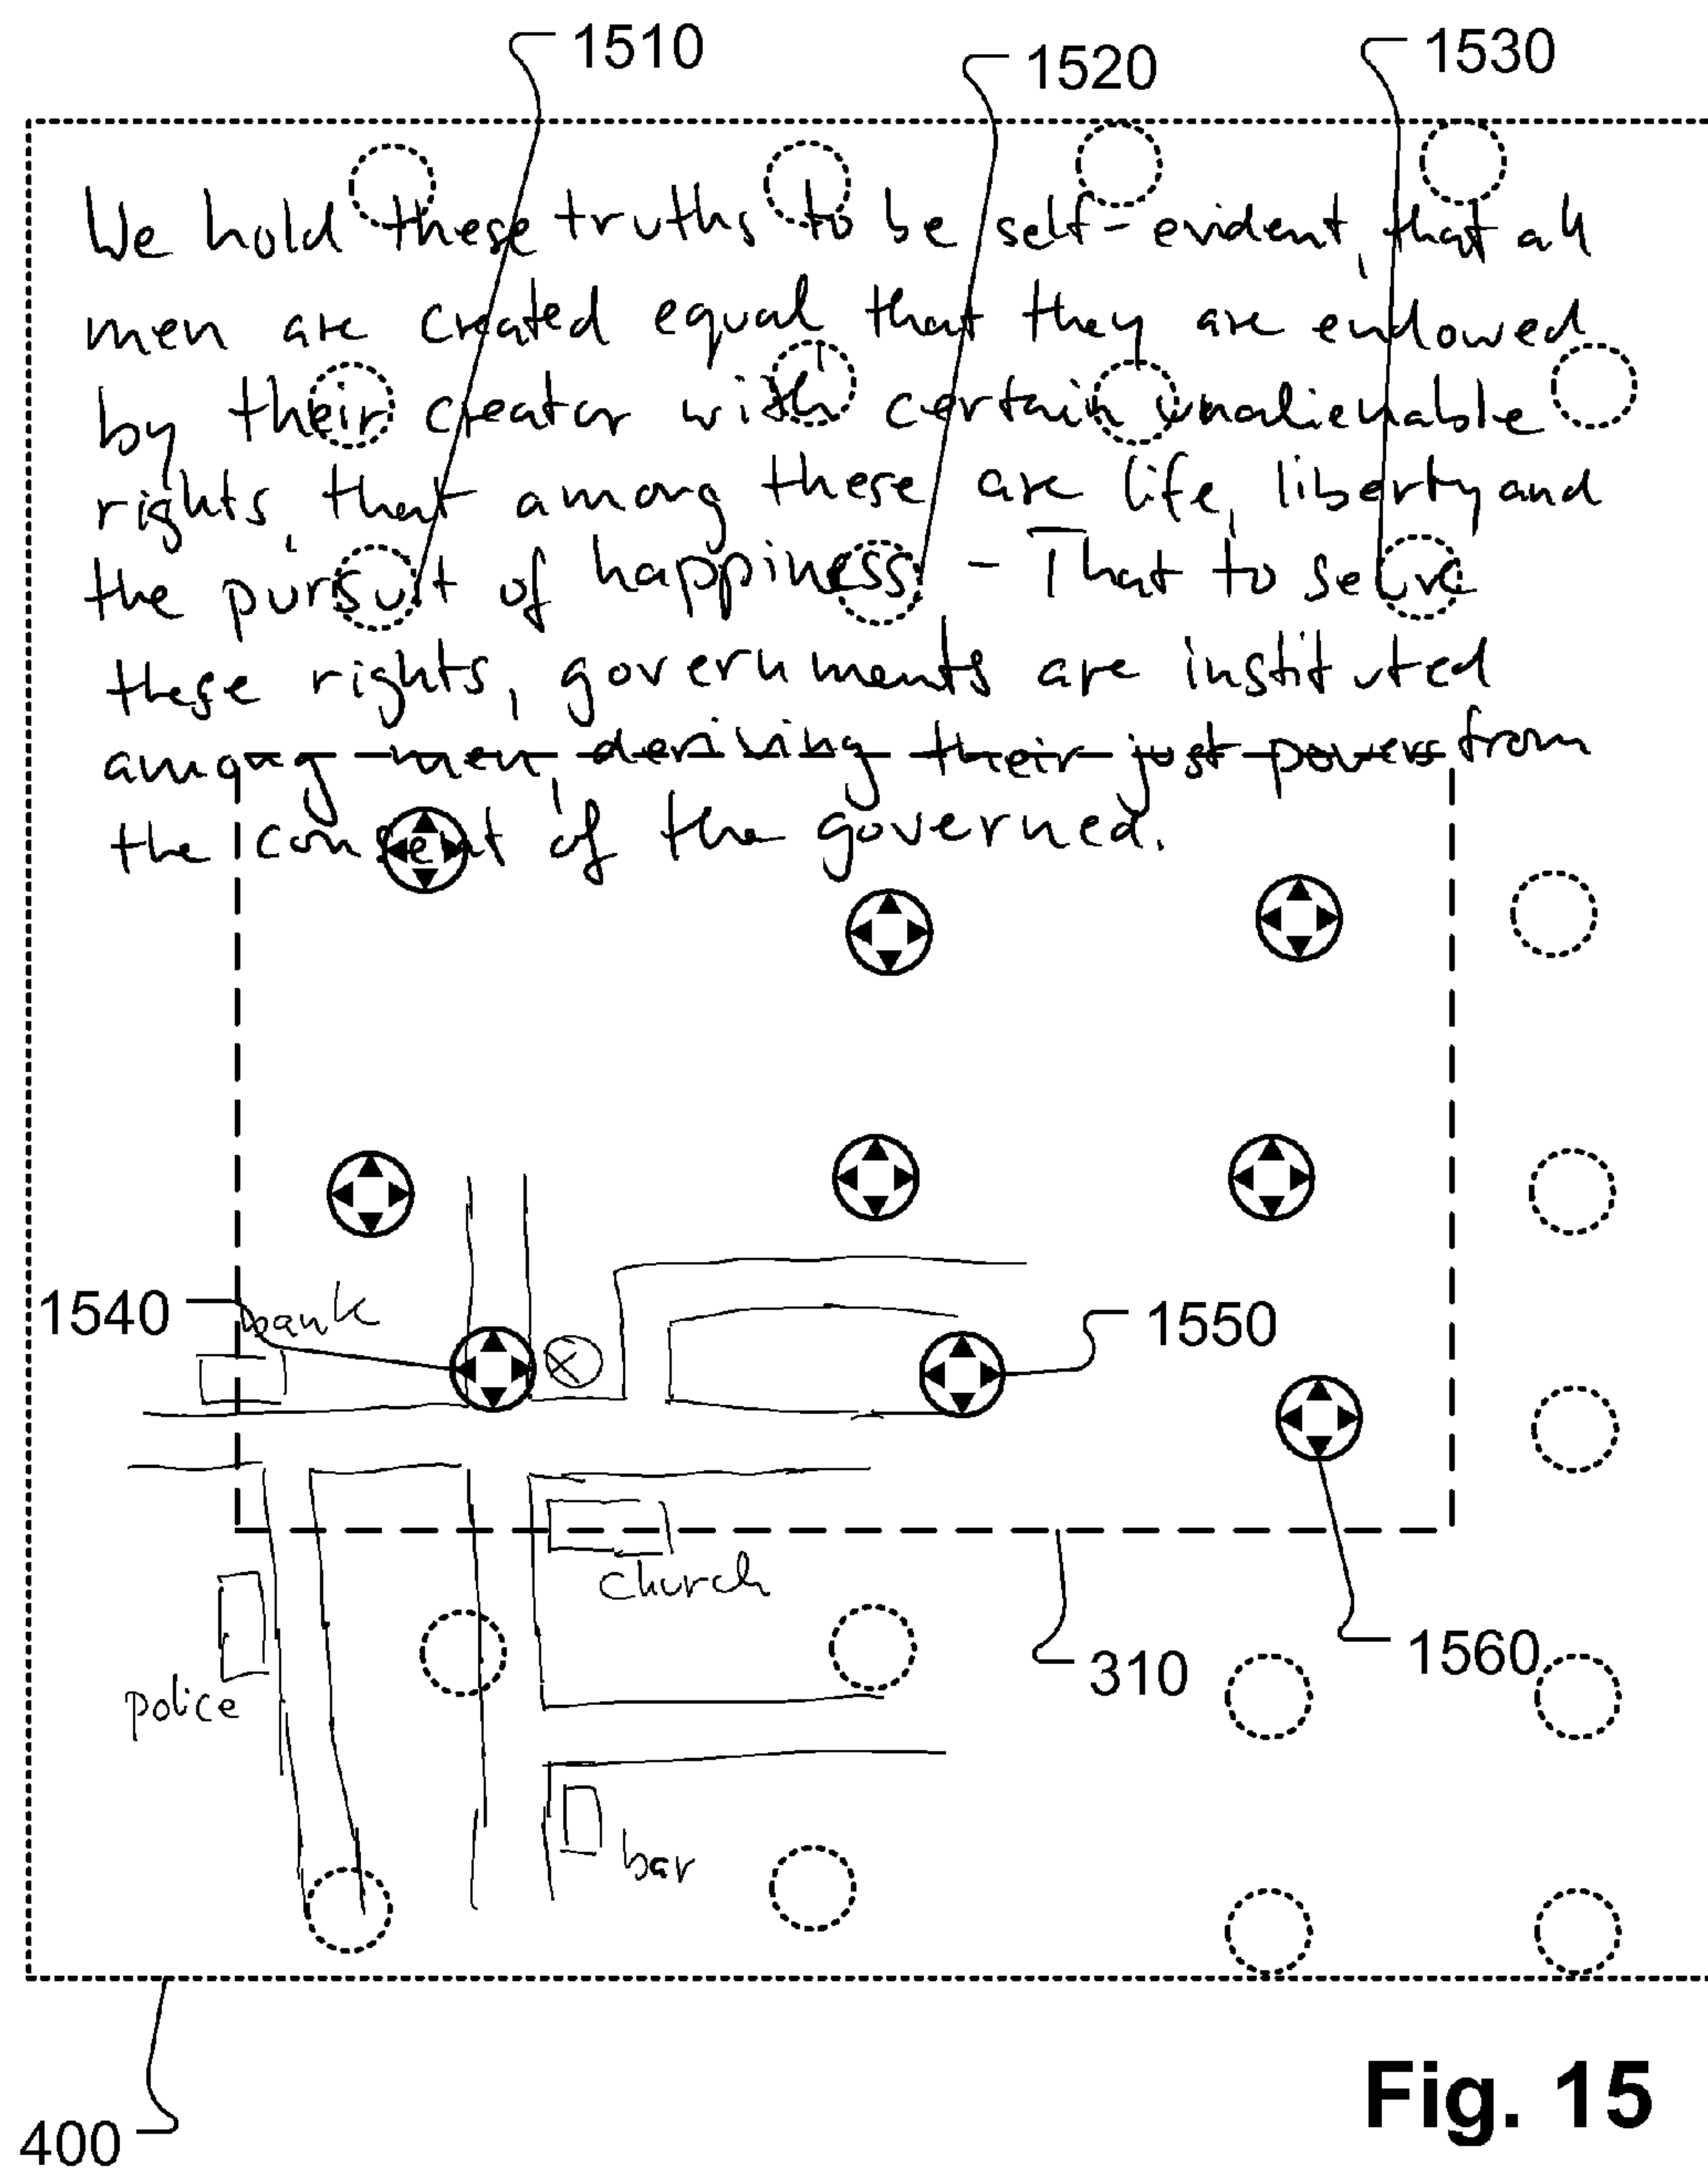 1510
1520
1530
We hold these truths to be self-evident, that all
men are created equal that they are endowed
by their creator with certain unalienable
rights, that among these are life, liberty and
the pursuit of happiness. - That to serve
these rights, governments are instituted
among men, deriving their just powers from
the consent of the governed.
1540
bank
1550
church
310
1560
police
bar
400
Fig. 15